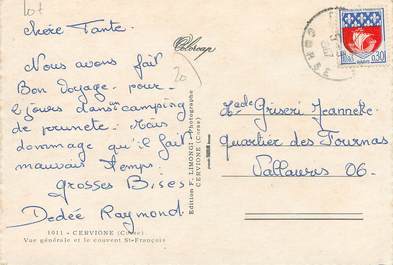 lot
Chère Tante.
Nous avons fait
Bon Voyage. pour
jours dans un camping
de prunete. Mais
dommage qu'il fait
mauvais temps.
Grosses Bises
Dedée Raymond.
1011 - CERVIONE (Corse)
Vue générale et le couvent St-François
20
Edition F. LIMONGI - Photographe
CERVIONE (Corse)
CORSE
0,30
Griseri Jeanneke
quartier des Fournas
Vallauris 06.